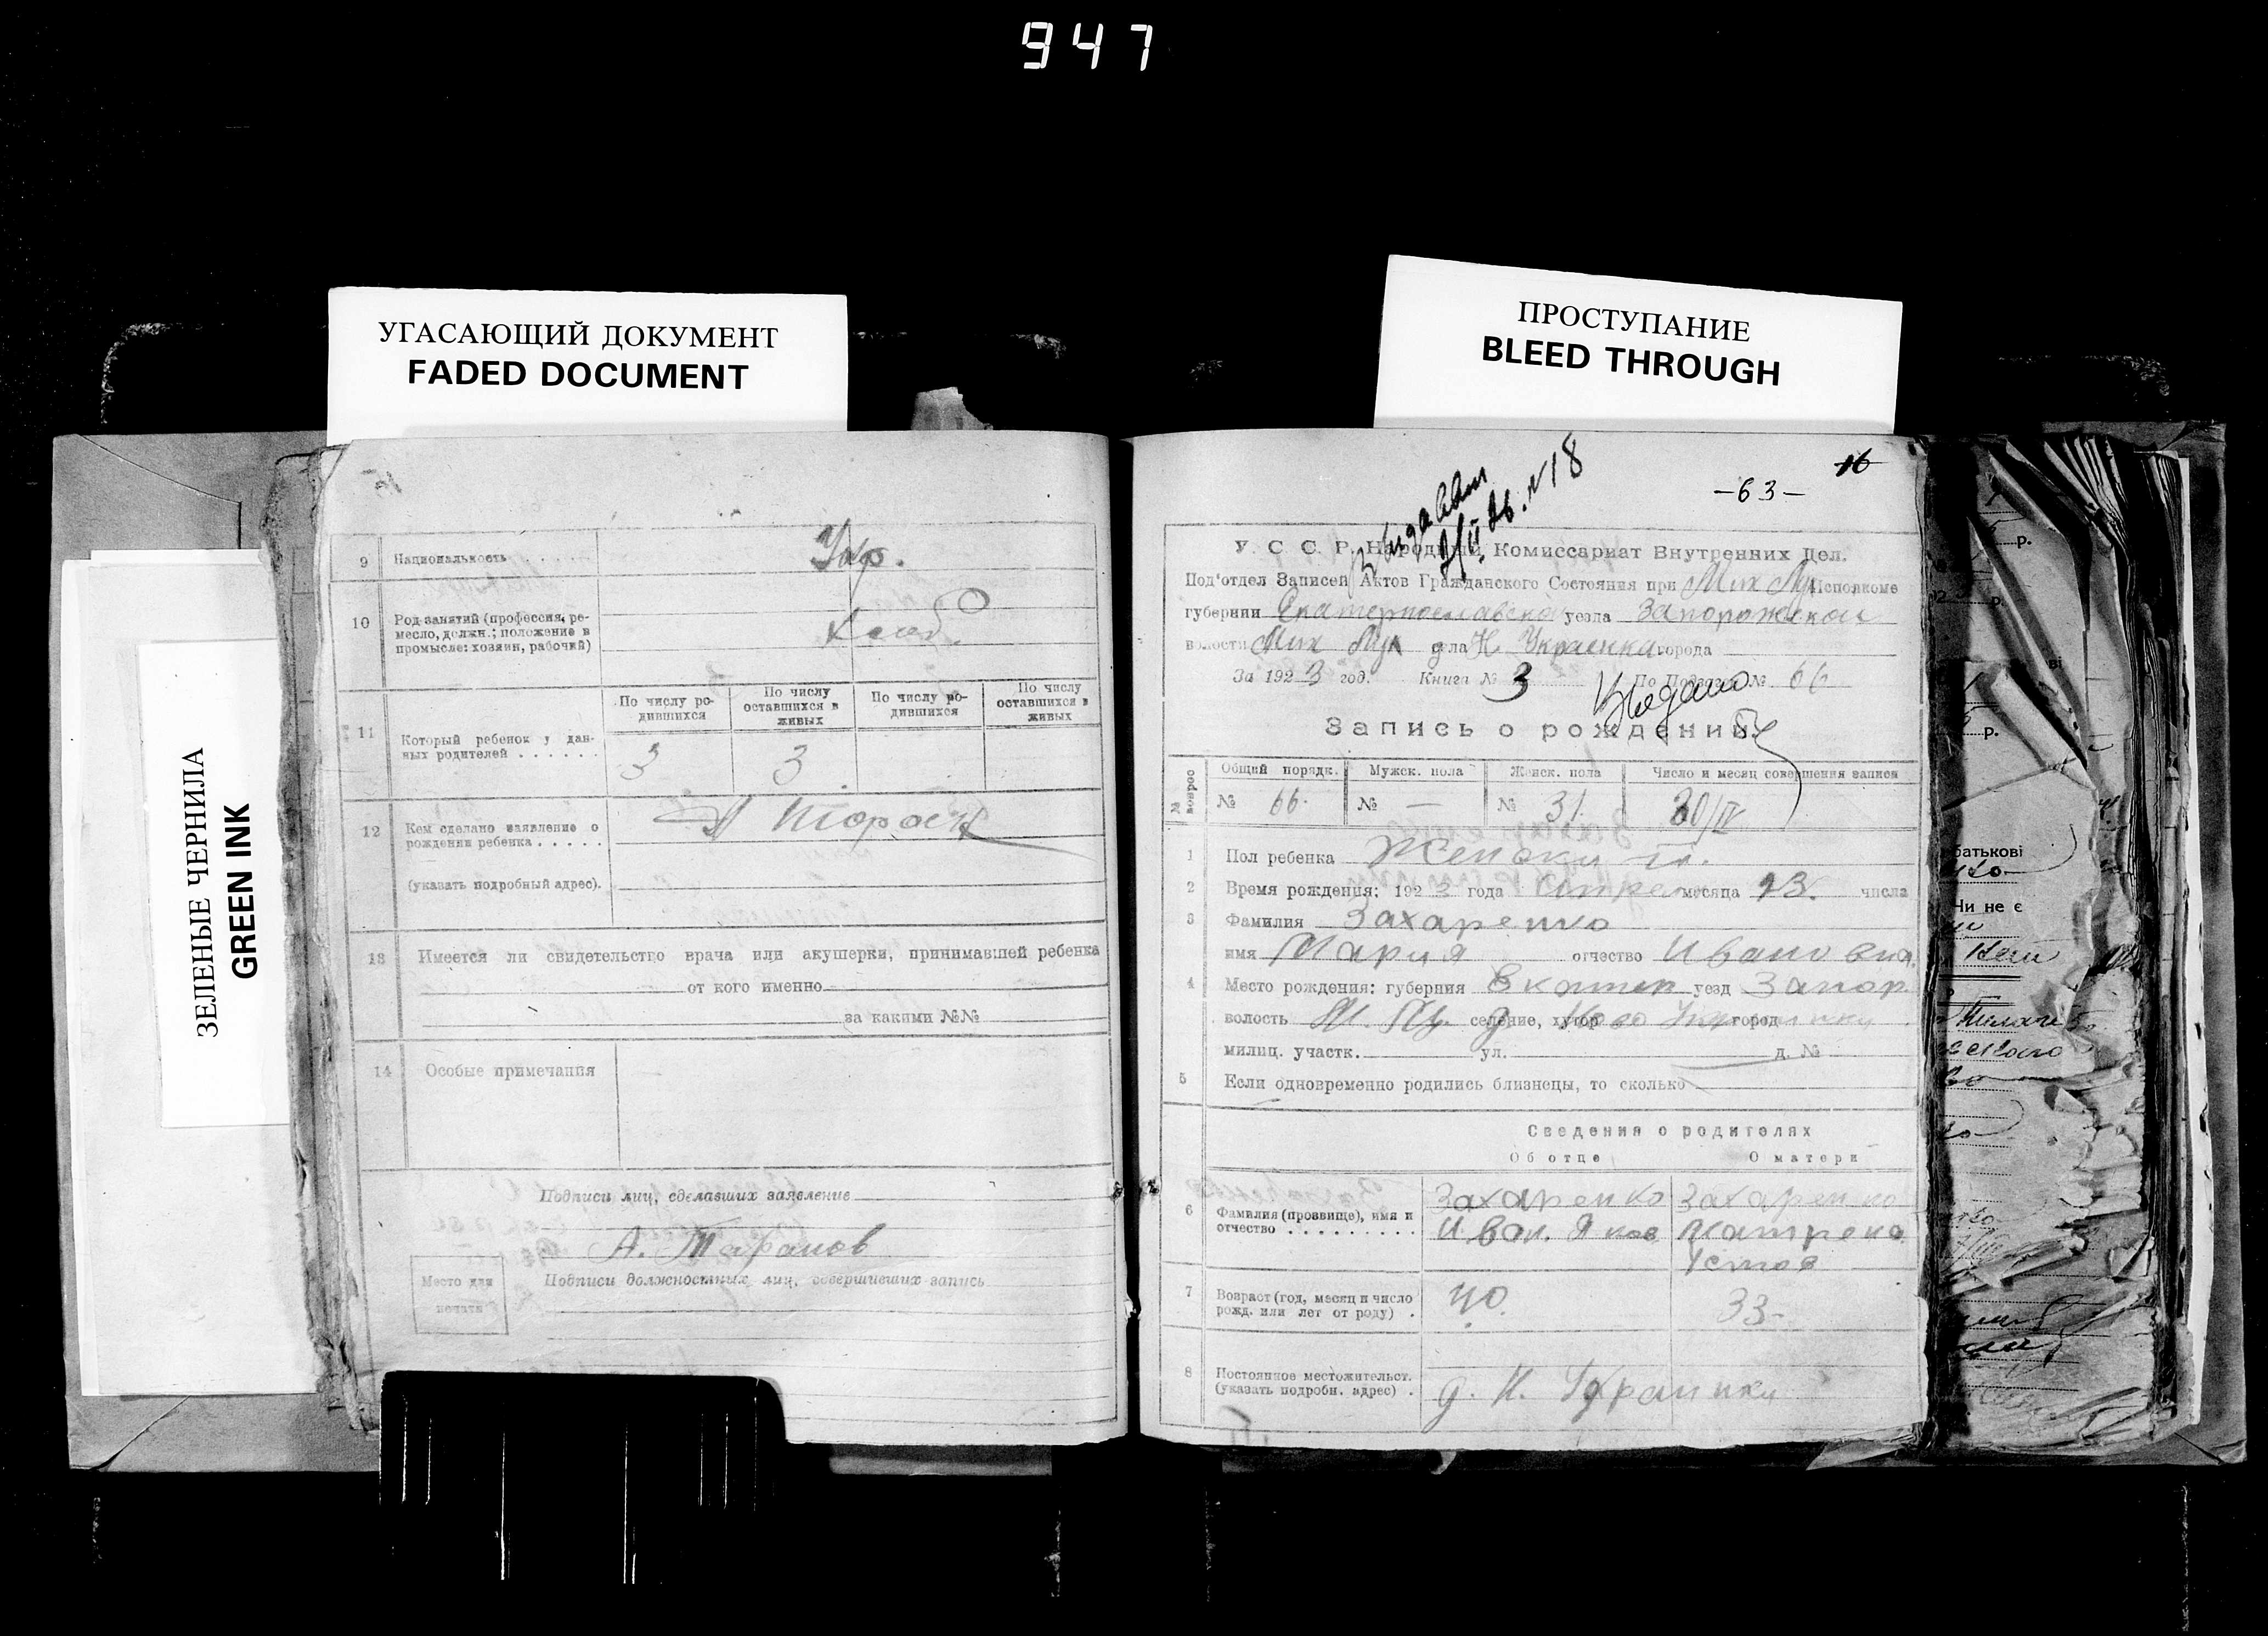 947
УГАСАЮЩИЙ ДОКУМЕНТ
FADED DOCUMENT
ПРОСТУПАНИЕ
BLEED THROUGH
ЗЕЛЕНЫЕ ЧЕРНИЛА
GREEN INK
9 Национальность . . . . . Укр.
10 Род занятий (профессия, ре-
месло, должн.; положение в
промысле: хозяин, рабочий)
Хлеб.
11 Который ребенок у дан-
ных родителей . . . . . .
По числу ро-
дившихся
По числу
оставшихся в
живых
По числу ро-
дившихся
По числу
оставшихся в
живых
3 3
12 Кем сделано заявление о
рождении ребенка . . . . .
(указать подробный адрес).
13 Имеется ли свидетельство врача или акушерки, принимавшей ребенка
от кого именно
за какими №№
14 Особые примечания
Подписи лиц, сделавших заявление
А. Таранов
Подписи должностных лиц, совершивших запись
Место для
печати
16
-63-
№ 18
У. С. С. Р. Народный Комиссариат Внутренних Дел.
Под'отдел Записей Актов Гражданского Состояния при Мих Лук Исполкоме
губернии Екатеринославской уезда Запорожской
волости Мих Лук села Н. Украенка города
За 1923 год. Книга № 3 № 66
Выдано
Запись о рождении
№ вопрос
Общий порядк. Мужск. пола Женск. пола Число и месяц совершения записи
№ 66. № — № 31 30/IV
1 Пол ребенка Женски п.
2 Время рождения: 1923 года месяца 23. числа
3 Фамилия Захаренко
имя Мария отчество Ивановна.
4 Место рождения: губерния Екатер уезд Запор.
волость М. Лу. селение, хутор д Ново Украинки город
милиц. участк. ул. д. №
5 Если одновременно родились близнецы, то сколько
Сведения о родителях
Об отце О матери
6 Фамилия (прозвище), имя и
отчество . . . . . . . . .
Захаренко
Иван. Яков
Захаренко
Устов
7 Возраст (год, месяц и число
рожд. или лет от роду) .
40. 33-
8 Постоянное местожительст.
(указать подробн. адрес) .
д. Н. Украинки
р.
р.
р.
батькові
Чи не є